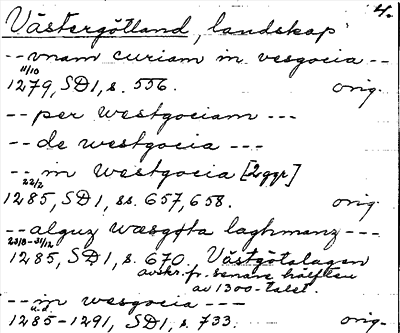 4.
Västergötland, landskap
-- vnam curiam in vesgocia --
11/10
1279, SD1, s. 556. orig.
-- per westgociam ---
-- de westgocia ---
-- in westgocia [2ggr]
22/2
1285, SD1, ss. 657, 658. orig.
-- alguz wæsgøta laghmanz ---
23/8-31/12
1285, SD1, s. 670. Västgötalagen
avskr. fr. senare hälften
av 1300-talet.
-- in wesgocia ---
u.d.
1285-1291, SD1, s. 733. orig.